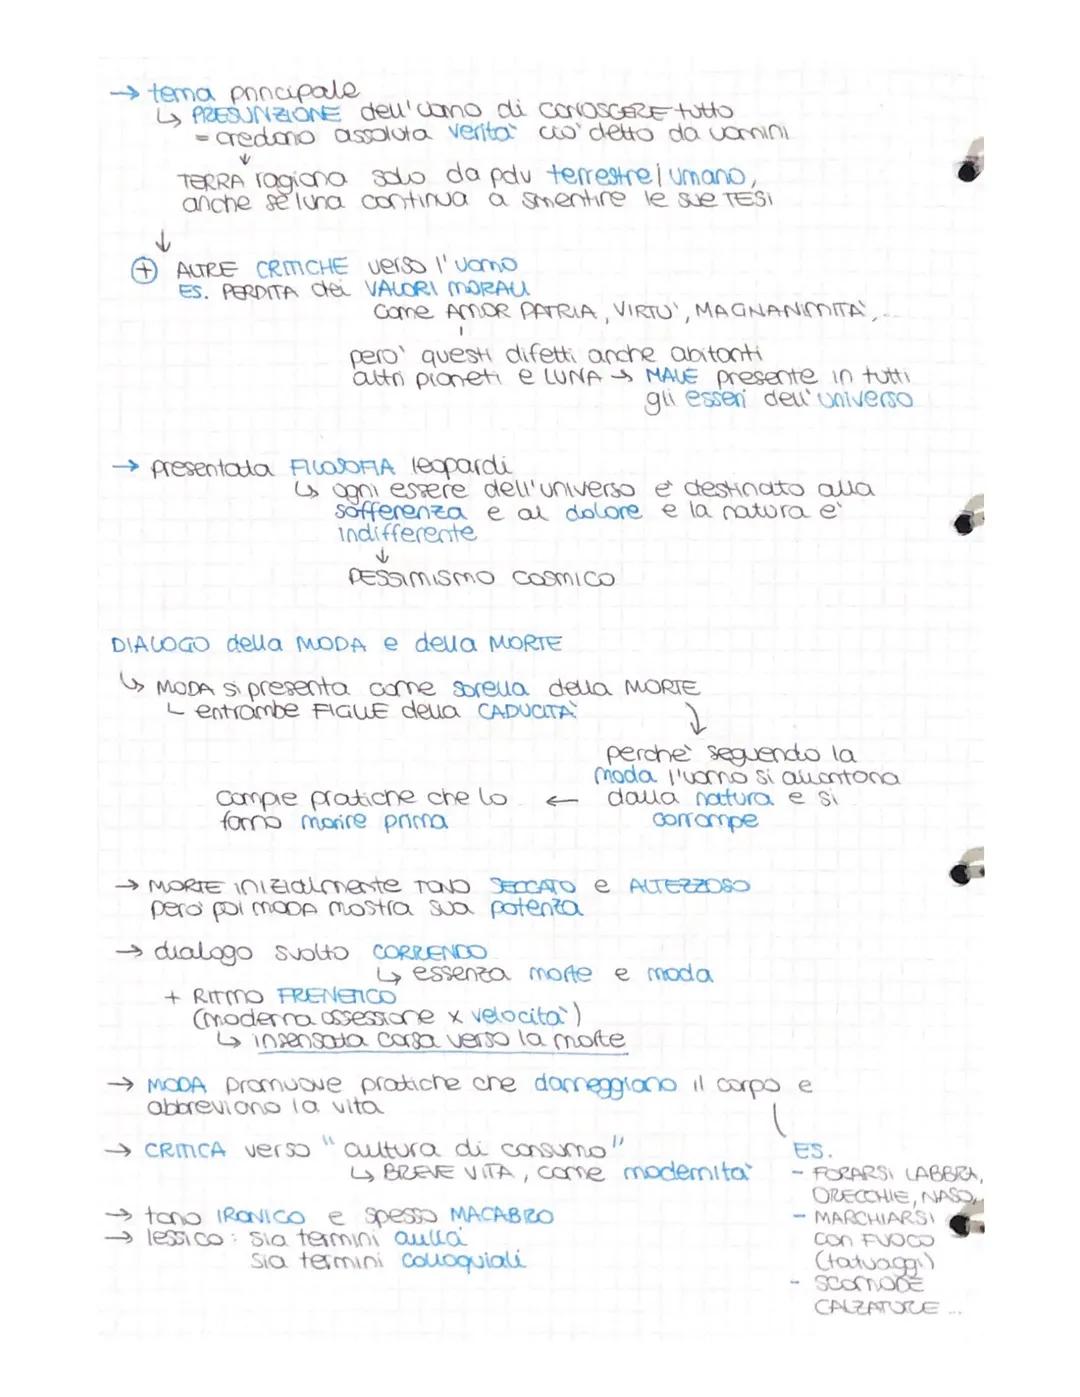 → tema principale
↳ PRESUNZIONE dell'uomo di CONOSCERE tutto
= credono assoluta verità ciò detto da uomini
↓
TERRA ragiona solo da pdv terrestre/umano,
anche se luna continua a smentire le sue TESI
↓
+ ALTRE CRITICHE verso l'uomo
ES. PERDITA dei VALORI MORALI
come AMOR PATRIA, VIRTU', MAGNANIMITA', ...
pero' questi difetti anche abitanti
altri pianeti e LUNA → MALE presente in tutti
gli esseri dell'universo
→ presentata FILOSOFIA leopardi
↳ ogni essere dell'universo e' destinato alla
sofferenza e al dolore e la natura e'
indifferente
↓
PESSIMISMO COSMICO
DIALOGO della MODA e della MORTE
↳ MODA si presenta come sorella della MORTE
∟ entrambe FIGLIE della CADUCITA'
↓
perche' seguendo la
moda l'uomo si allontana
dalla natura e si
corrompe
←
compie pratiche che lo
fanno morire prima
→ MORTE inizialmente TONO SECCATO e ALTEZZOSO
pero' poi MODA mostra sua potenza
→ dialogo svolto CORRENDO
↳ essenza morte e moda
+ RITMO FRENETICO
(moderna ossessione x velocita')
↳ insensata corsa verso la morte
→ MODA promuove pratiche che danneggiano il corpo e
abbreviano la vita
ES.
- FORARSI LABBRA,
ORECCHIE, NASO,
- MARCHIARSI
con FUOCO
(tatuaggi)
- SCOMODE
CALZATURE ...
→ CRITICA verso "cultura di consumo"
↳ BREVE VITA, come modernita'
→ tono IRONICO e spesso MACABRO
→ lessico: sia termini aulici
sia termini colloquiali